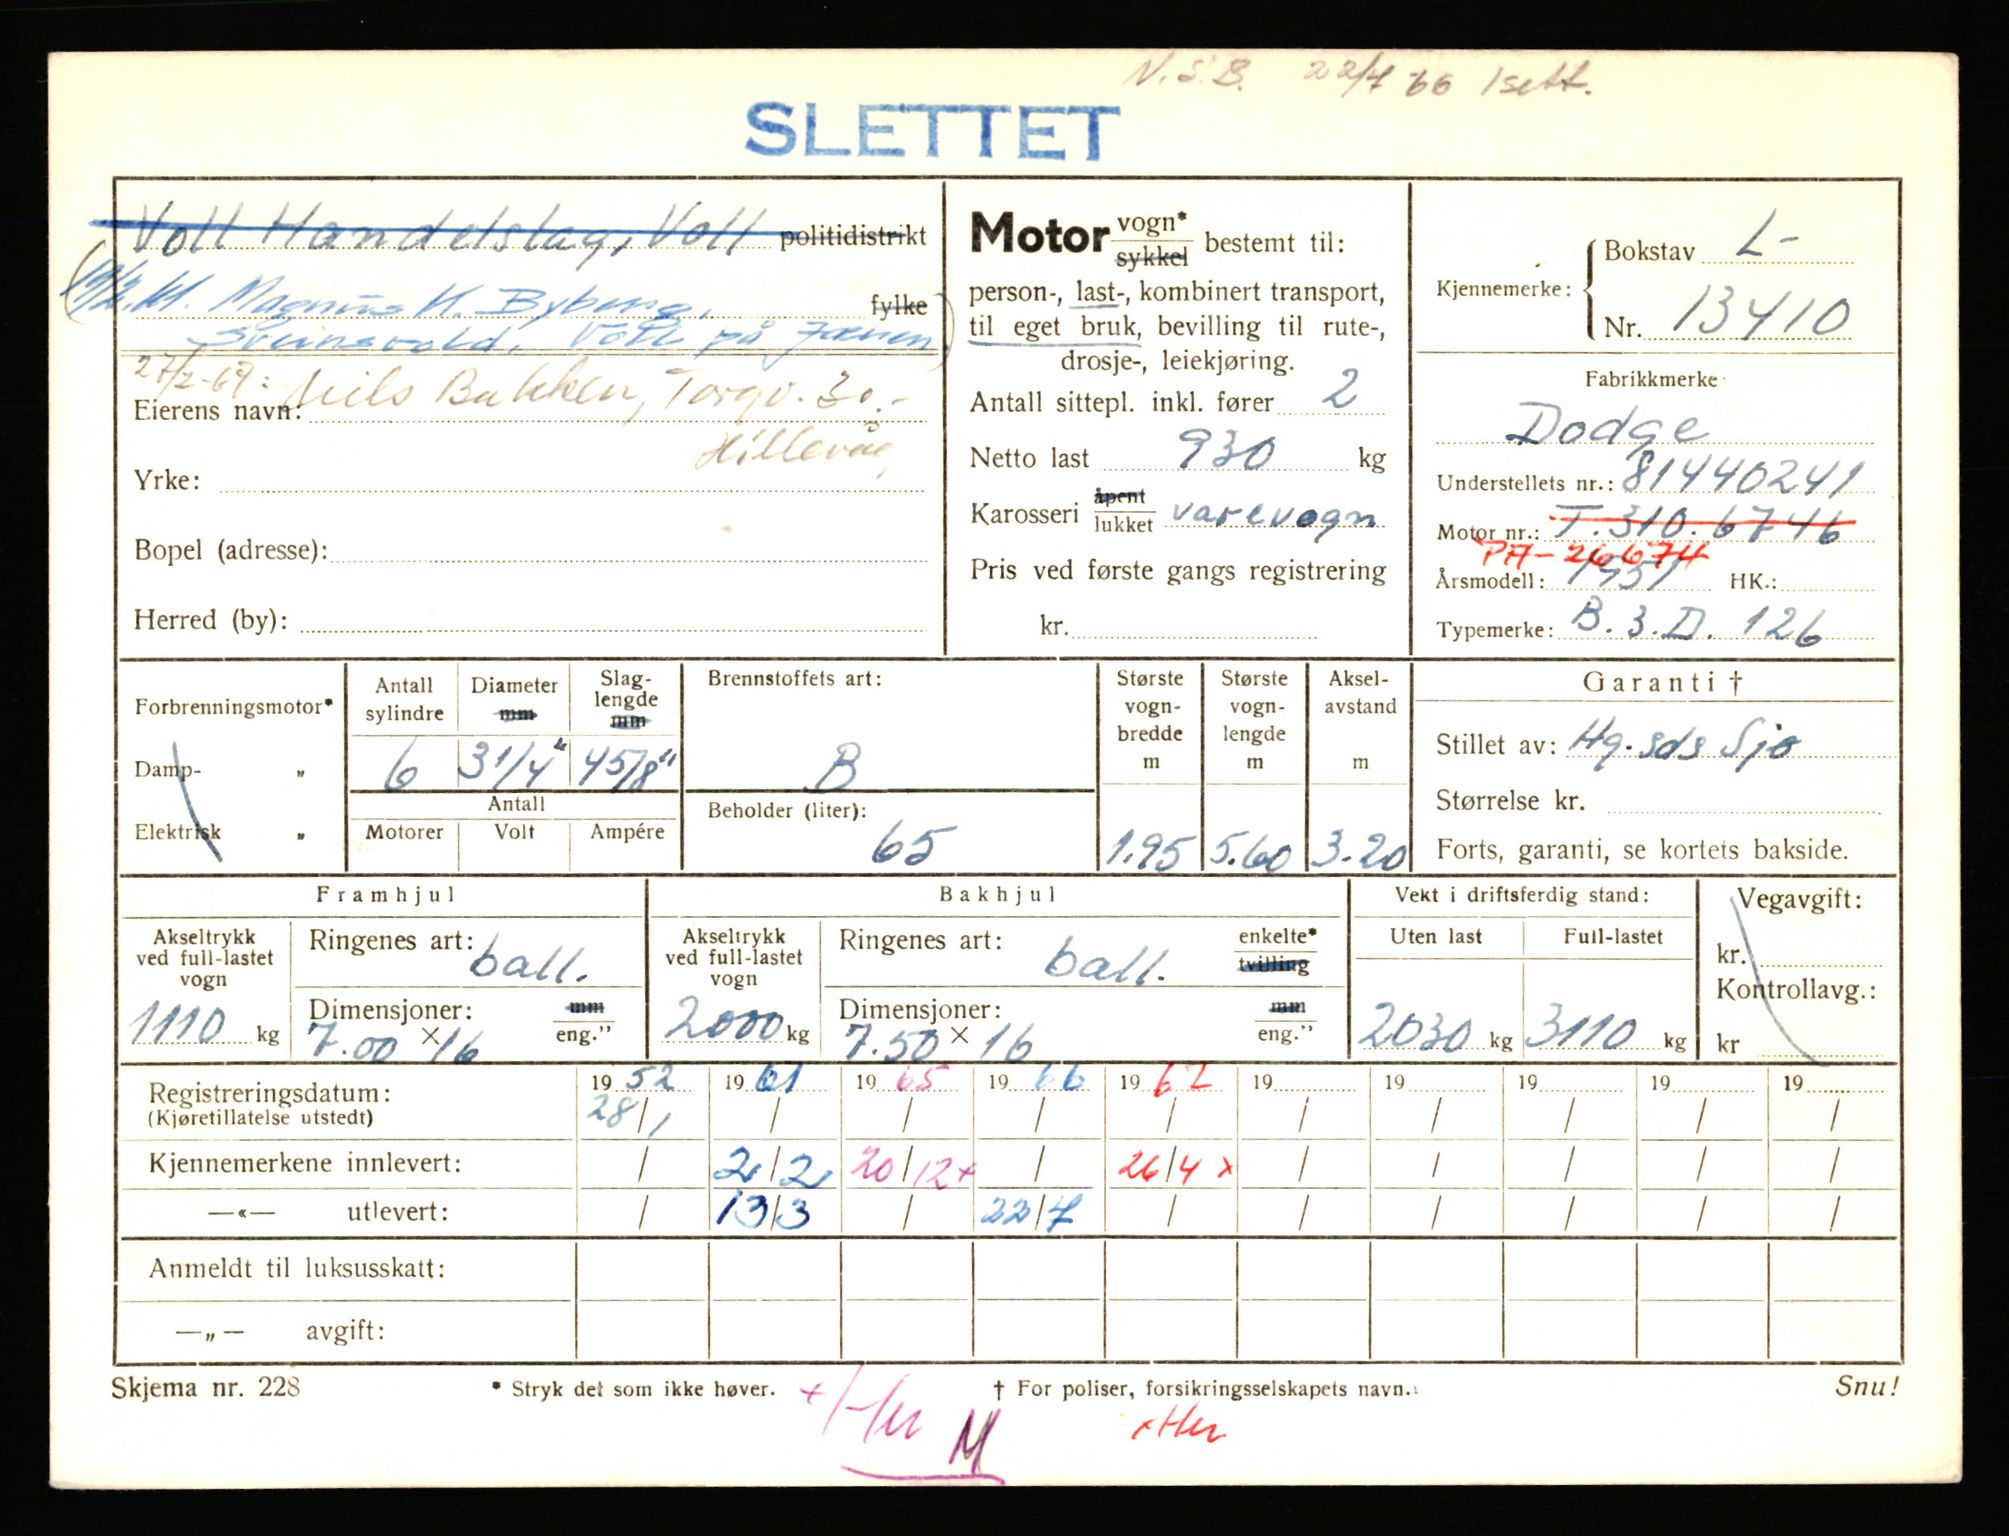 N.S.B. 22/7 66 1 sett.
SLETTET
Voll Handelslag, Voll politidistrikt
Magnus H. Byberg, fylke
Sveinsvold, Voll på Jæren
27/2-69: Nils Bakken, Torgv. 30.-
Eierens navn:
Hillevåg
Yrke:
Bopel (adresse):
Herred (by):
Motor vogn* sykkel bestemt til:
person-, last-, kombinert transport,
til eget bruk, bevilling til rute-,
drosje-, leiekjøring.
Antall sittepl. inkl. fører 2
Netto last 930 kg
Karosseri åpent lukket varevogn
Pris ved første gangs registrering
kr.
Kjennemerke: Bokstav L-
Nr. 13410
Fabrikkmerke
Dodge
Understellets nr.: 81440241
Motor nr.: T.310.6746
PA-26674
Årsmodell: 1951 HK.:
Typemerke: B.3.D. 126
Forbrenningsmotor*
Damp- „
Elektrisk „
Antall sylindre 6
Diameter mm 3 1/4"
Slag-lengde mm 4 5/8"
Antall
Motorer Volt Ampére
Brennstoffets art:
B
Beholder (liter):
65
Største vogn-bredde m 1.95
Største vogn-lengde m 5.60
Aksel-avstand m 3.20
Garanti †
Stillet av: Hg.sds Sjø
Størrelse kr.
Forts, garanti, se kortets bakside.
Framhjul
Akseltrykk ved full-lastet vogn
1110 kg
Ringenes art: ball.
Dimensjoner: mm
7.00 × 16 eng."
Bakhjul
Akseltrykk ved full-lastet vogn
2000 kg
Ringenes art: ball. enkelte* tvilling
Dimensjoner: mm
7.50 × 16 eng."
Vekt i driftsferdig stand:
Uten last Full-lastet
2030 kg 3110 kg
Vegavgift:
kr.
Kontrollavg.:
kr
Registreringsdatum: 19 52 19 61 19 65 19 66 19 67 19 19 19 19 19
(Kjøretillatelse utstedt) 28/1 / / / / / / / / /
Kjennemerkene innlevert: / 2/2 20/12+ / 26/4 x / / / / /
—«— utlevert: / 13/3 / 22/7 / / / / / /
Anmeldt til luksusskatt:
—„— avgift:
Skjema nr. 228 * Stryk det som ikke høver. † For poliser, forsikringsselskapets navn. Snu!
+ Her M xHer